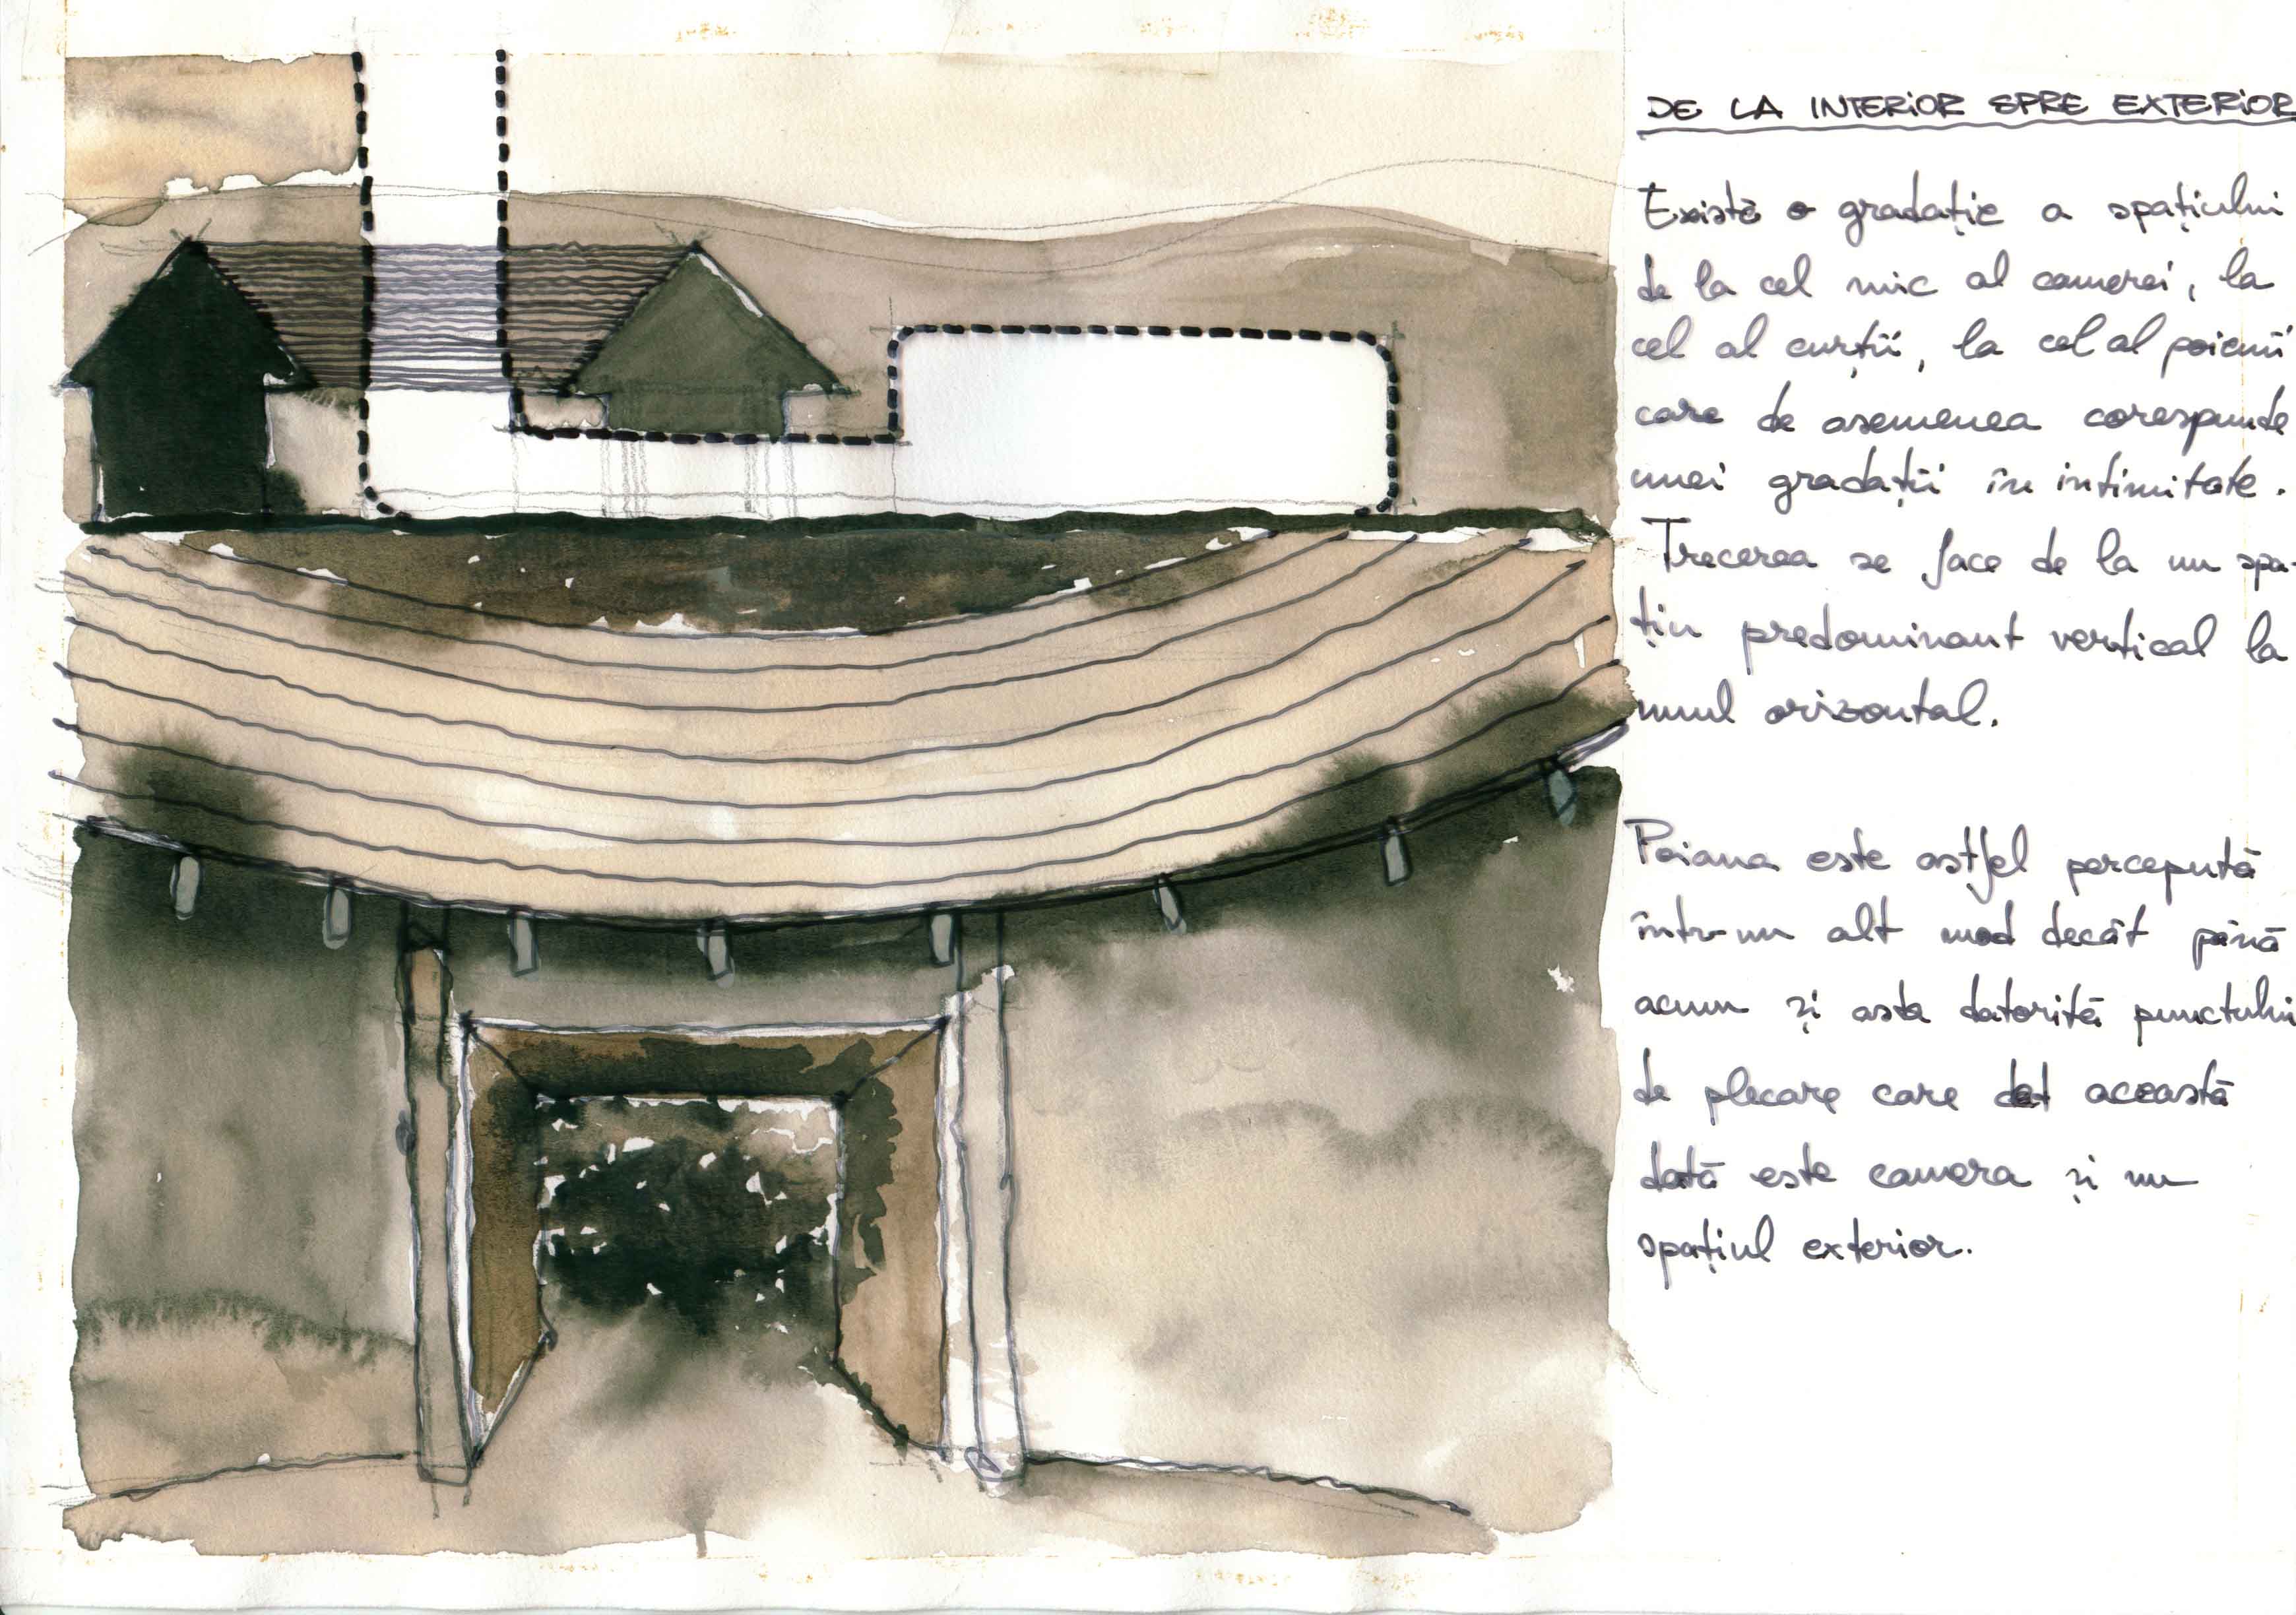 DE LA INTERIOR SPRE EXTERIOR
Există o gradație a spațiului
de la cel mic al camerei, la
cel al curții, la cel al poienii
care de asemenea corespunde
unei gradații în intimitate.
Trecerea se face de la un spa-
țiu predominant vertical la
unul orizontal.
Poiana este astfel percepută
într-un alt mod decât până
acum și asta datorită punctului
de plecare care această
dată este camera și nu
spațiul exterior.